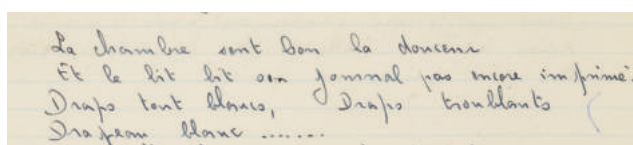 La chambre sent bon la douceur
Et le lit lit son journal pas encore imprimé.
Draps tout blancs, Draps troublants
Drapeau blanc .......